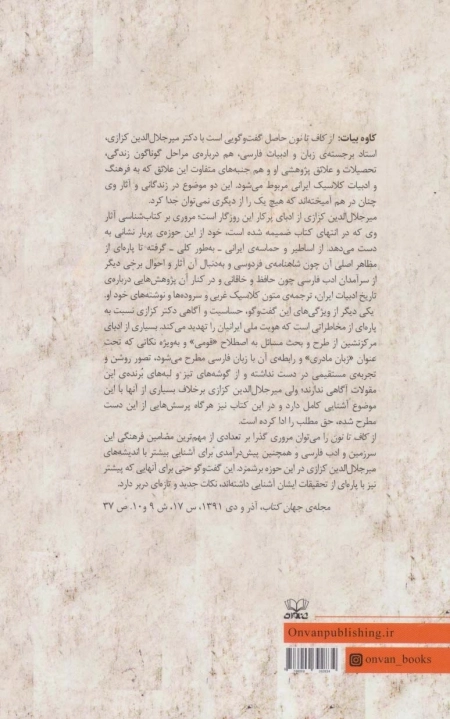 کاوه بیات: از کاف تا نون حاصل گفت‌وگویی است با دکتر میرجلال‌الدین کزازی،
استاد برجسته‌ی زبان و ادبیات فارسی، هم درباره‌ی مراحل گوناگون زندگی،
تحصیلات و علائق پژوهشی او و هم جنبه‌های متفاوت این علائق که به فرهنگ
و ادبیات کلاسیک ایرانی مربوط می‌شود. این دو موضوع در زندگانی و آثار وی
چنان در هم آمیخته‌اند که هیچ یک را از دیگری نمی‌توان جدا کرد.
میرجلال‌الدین کزازی از ادبای پرکار این روزگار است؛ مروری بر کتاب‌شناسی آثار
وی که در انتهای کتاب ضمیمه شده است، خود از این حوزه‌ی پربار نشانی به
دست می‌دهد: از اساطیر و حماسه‌ی ایرانی ـ به‌طور کلی ـ گرفته تا پاره‌ای از
مظاهر اصلی آن چون شاهنامه‌ی فردوسی و به‌دنبال آن آثار و احوال برخی دیگر
از سرآمدان ادب فارسی چون حافظ و خاقانی و در کنار آن پژوهش‌هایی درباره‌ی
تاریخ ادبیات ایران، ترجمه‌ی متون کلاسیک غربی و سروده‌ها و نوشته‌های خود او.
یکی دیگر از ویژگی‌های این گفت‌وگو، حساسیت و آگاهی دکتر کزازی نسبت به
پاره‌ای از مخاطراتی است که هویت ملی ایرانیان را تهدید می‌کند. بسیاری از ادبای
مرکزنشین از طرح و بحث مسائل به اصطلاح «قومی» و به‌ویژه نکاتی که تحت
عنوان «زبان مادری» و رابطه‌ی آن با زبان فارسی مطرح می‌شود، تصور روشن و
تجربه‌ی مستقیمی در دست نداشته و از گوشه‌های تیز و لبه‌های بُرنده‌ی این
مقولات آگاهی ندارند؛ ولی میرجلال‌الدین کزازی برخلاف بسیاری از آنها با این
موضوع آشنایی کامل دارد و در این کتاب نیز هرگاه پرسش‌هایی از این دست
مطرح شده، حق مطلب را ادا کرده است.
از کاف تا نون را می‌توان مروری گذرا بر تعدادی از مهم‌ترین مضامین فرهنگی این
سرزمین و ادب فارسی و همچنین پیش‌درآمدی برای آشنایی بیشتر با اندیشه‌های
میرجلال‌الدین کزازی در این حوزه برشمرد. این گفت‌وگو حتی برای آنهایی که پیشتر
نیز با پاره‌ای از تحقیقات ایشان آشنایی داشته‌اند، نکات جدید و تازه‌ای دربر دارد.
مجله‌ی جهان کتاب، آذر و دی ۱۳۹۱، س ۱۷، ش ۹ و ۱۰. ص ۳۷
عنوان
Onvanpublishing.ir
onvan_books